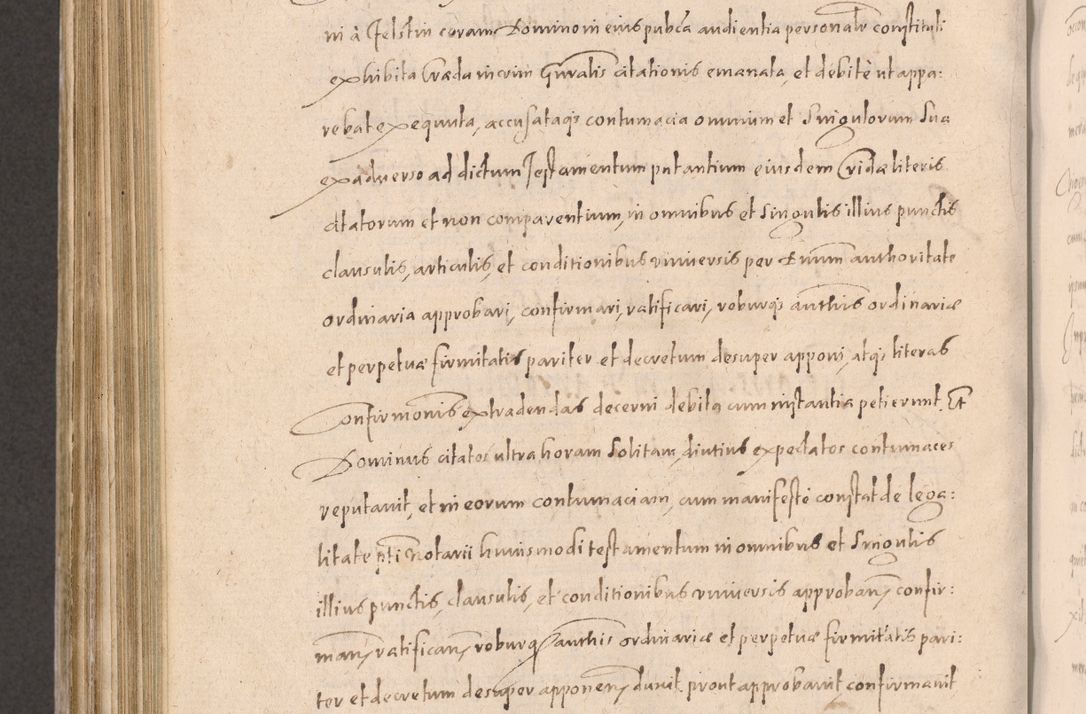 ni à Jelstin coram Domino in eius pubca audientia personalr constituti
exhibita Cræda in crim Gnralis citationis emanata, et debitè ut appa:
rebat exequuta, accusataqs contumacia omnium et Singulorum Sua
ex aduerso ad dictum Testamentum putantium eiusdem Cridæ literis
citatorum et non comparentium, in omnibus et Singulis illius punctis
clausulis, articulis, et conditionibus vniuersis per Dnum authoritate
ordinaria approbari, confirmari, ratificari, roburqs authis ordinariæ
et perpetuæ firmitatis pariter et decretum desuper apponi, atqs literas
Confirmonis extradendas decerni debita cum instantia petierunt. Et
Dominus citatos ultra horam Solitam, diutius expectatos contumaces
reputauit, et in eorum contumaciam, cum manifestè constat de lega:
litate pti Notarii huiusmodi testamentum in omnibus et Singulis
illius punctis, clausulis, et conditionibus vniuersis approban, confir:
man, ratifican, roburq authis ordinariæ et perpetuæ firmitatis pari:
ter et decretum desuper apponen, duxit. prout approbauit confirmauit